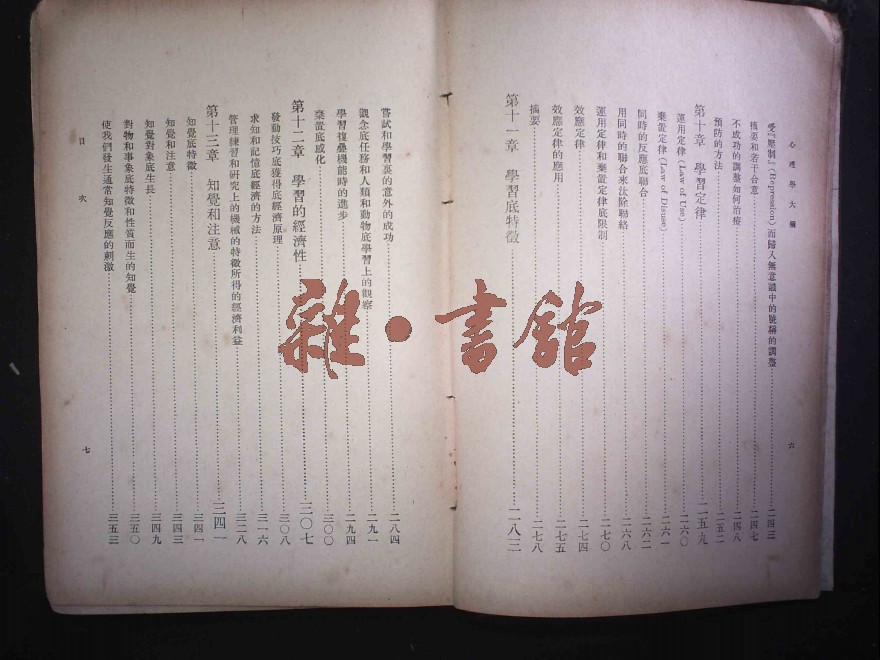 心理學大綱
六
受『壓制』(Repression)而歸入無意識中的號稱的調整……二四三
摘要和若干合意……二四七
不成功的調整如何治療……二四八
預防的方法……二五二
第十章 學習定律……二五九
運用定律(Law of Use)……二六〇
棄置定律(Law of Disuse)……二六一
同時的反應底聯合……二六二
用同時的聯合來法除聯絡……二六八
運用定律和棄置定律底限制……二七〇
效應定律……二七四
效應定律的應用……二七五
摘要……二七八
第十一章 學習底特徵……二八三
嘗試和學習裏的意外的成功……二八四
觀念底任務和人類和動物底學習上的觀察……二九一
學習複疊機能時的進步……二九四
棄置底感化……三〇〇
第十二章 學習的經濟性……三〇七
發動技巧底獲得底經濟原理……三〇八
求知和記憶底經濟的方法……三一六
管理練習和研究上的機械的特徵所得的經濟利益……三二八
第十三章 知覺和注意……三四一
知覺底特徵……三四一
知覺和注意……三四三
知覺對象底生長……三四九
對物和事象底特徵和性質而生的知覺……三五〇
使我們發生通常知覺反應的刺激……三五三
目次
七
雜·書館